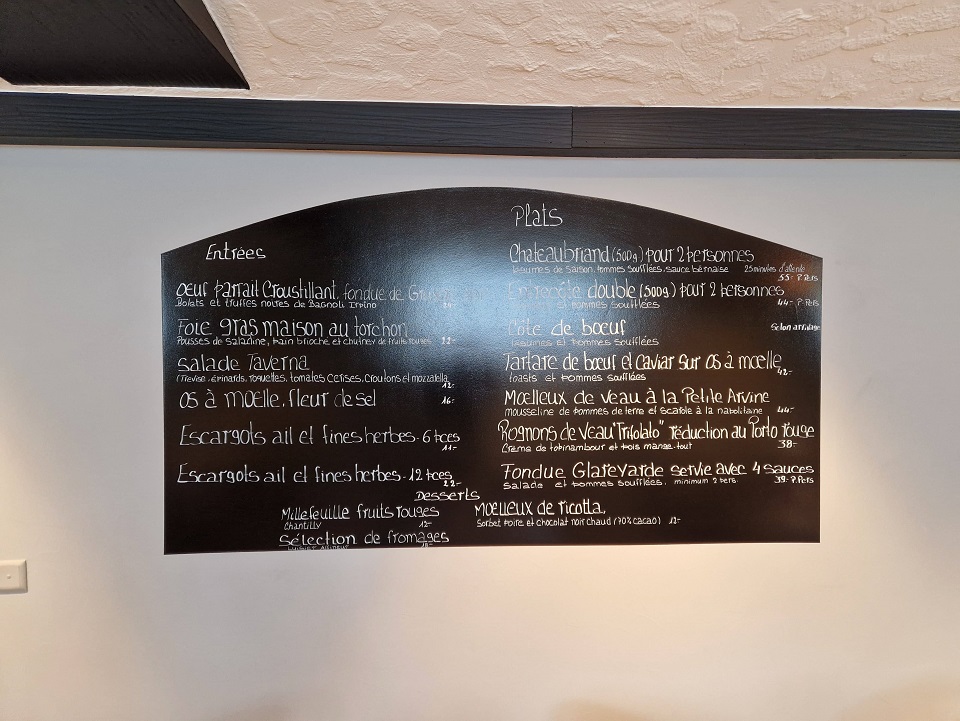 Entrées
Oeuf Parfait Croustillant, fondue de
Bolets et truffes noires de Bagnoli Irpino
Foie gras maison au torchon
Pousses de Saladine, pain brioché et chutney de fruits rouges 22-
Salade Taverna
(Trévise, épinards, roquettes, tomates cerises, croutons et mozzarella
12-
Os à moelle, fleur de sel 16-
Escargots ail et fines herbes - 6 pces
11-
Escargots ail et fines herbes - 12 pces
22-
Plats
Chateaubriand (500g) pour 2 personnes
légumes de Saison, pommes Soufflées, sauce béarnaise 25 minutes d'attente
55- P.Pers
Entrecôte double (500g) pour 2 personnes
légumes et pommes Soufflées 44- P.Pers
Côte de bœuf Selon arrivage
légumes et pommes soufflées
Tartare de bœuf et Caviar Sur Os à moelle
toasts et pommes soufflées 42-
Moelleux de veau à la Petite Arvine
mousseline de pommes de terre et scarole à la napolitaine 44-
Rognons de Veau "Trifolato" réduction au Porto rouge
Crème de topinambour et pois mange-tout 38-
Fondue Glareyarde servie avec 4 sauces
Salade et pommes soufflées. minimum 2 pers. 39- P.Pers
Desserts
Millefeuille fruits rouges
Chantilly 12-
Sélection de fromages
18-
Moelleux de ricotta,
Sorbet poire et chocolat noir chaud (70% cacao) 12-